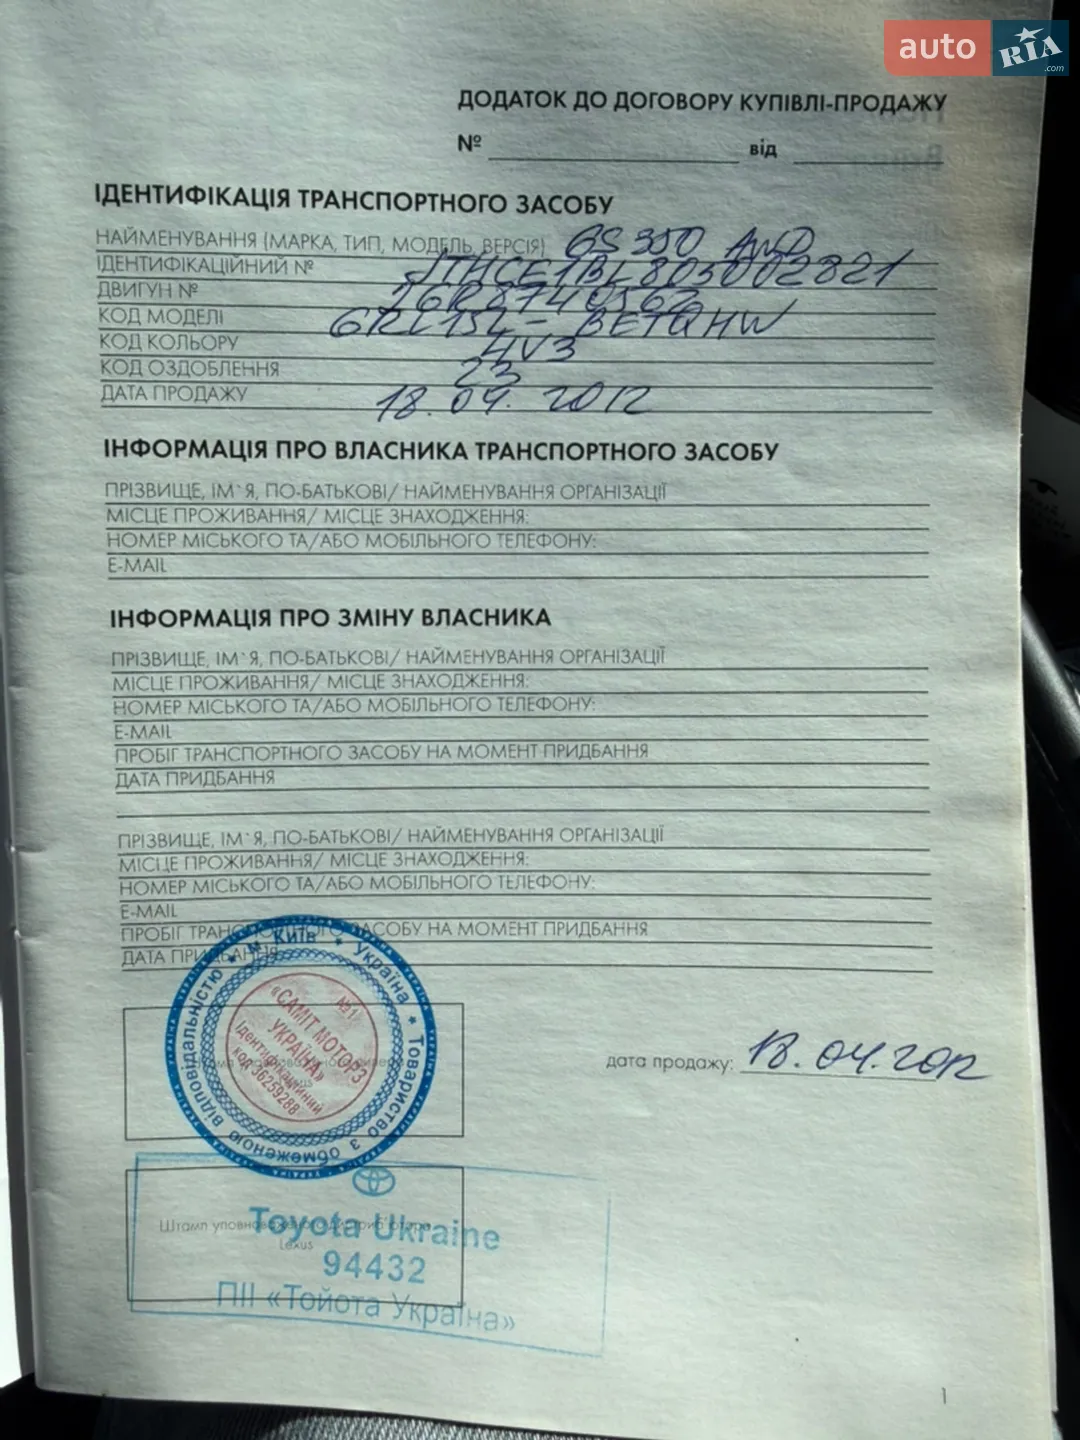 auto RIA .com
ДОДАТОК ДО ДОГОВОРУ КУПІВЛІ-ПРОДАЖУ
№ від
ІДЕНТИФІКАЦІЯ ТРАНСПОРТНОГО ЗАСОБУ
НАЙМЕНУВАННЯ (МАРКА, ТИП, МОДЕЛЬ, ВЕРСІЯ) GS 350 AWD
ІДЕНТИФІКАЦІЙНИЙ № JTHCE1BL805002821
ДВИГУН № 2GR8740562
КОД МОДЕЛІ GRL15L - BETQHW
КОД КОЛЬОРУ 4V3
КОД ОЗДОБЛЕННЯ 23
ДАТА ПРОДАЖУ 18.04.2012
ІНФОРМАЦІЯ ПРО ВЛАСНИКА ТРАНСПОРТНОГО ЗАСОБУ
ПРІЗВИЩЕ, ІМ`Я, ПО-БАТЬКОВІ/ НАЙМЕНУВАННЯ ОРГАНІЗАЦІЇ
МІСЦЕ ПРОЖИВАННЯ/ МІСЦЕ ЗНАХОДЖЕННЯ:
НОМЕР МІСЬКОГО ТА/АБО МОБІЛЬНОГО ТЕЛЕФОНУ:
E-MAIL
ІНФОРМАЦІЯ ПРО ЗМІНУ ВЛАСНИКА
ПРІЗВИЩЕ, ІМ`Я, ПО-БАТЬКОВІ/ НАЙМЕНУВАННЯ ОРГАНІЗАЦІЇ
МІСЦЕ ПРОЖИВАННЯ/ МІСЦЕ ЗНАХОДЖЕННЯ:
НОМЕР МІСЬКОГО ТА/АБО МОБІЛЬНОГО ТЕЛЕФОНУ:
E-MAIL
ПРОБІГ ТРАНСПОРТНОГО ЗАСОБУ НА МОМЕНТ ПРИДБАННЯ
ДАТА ПРИДБАННЯ
ПРІЗВИЩЕ, ІМ`Я, ПО-БАТЬКОВІ/ НАЙМЕНУВАННЯ ОРГАНІЗАЦІЇ
МІСЦЕ ПРОЖИВАННЯ/ МІСЦЕ ЗНАХОДЖЕННЯ:
НОМЕР МІСЬКОГО ТА/АБО МОБІЛЬНОГО ТЕЛЕФОНУ:
E-MAIL
ПРОБІГ ТРАНСПОРТНОГО ЗАСОБУ НА МОМЕНТ ПРИДБАННЯ
ДАТА ПРИДБАННЯ
м Київ * Україна * Товариство з обмеженою відповідальністю *
№1
«САМІТ МОТОРЗ
УКРАЇНА»
Ідентифікаційний
код 36259288
дата продажу: 18.04.2012
Штамп уповноваженого дистриб`ютора
Lexus
Toyota Ukraine
94432
ПІІ «Тойота Україна»
1